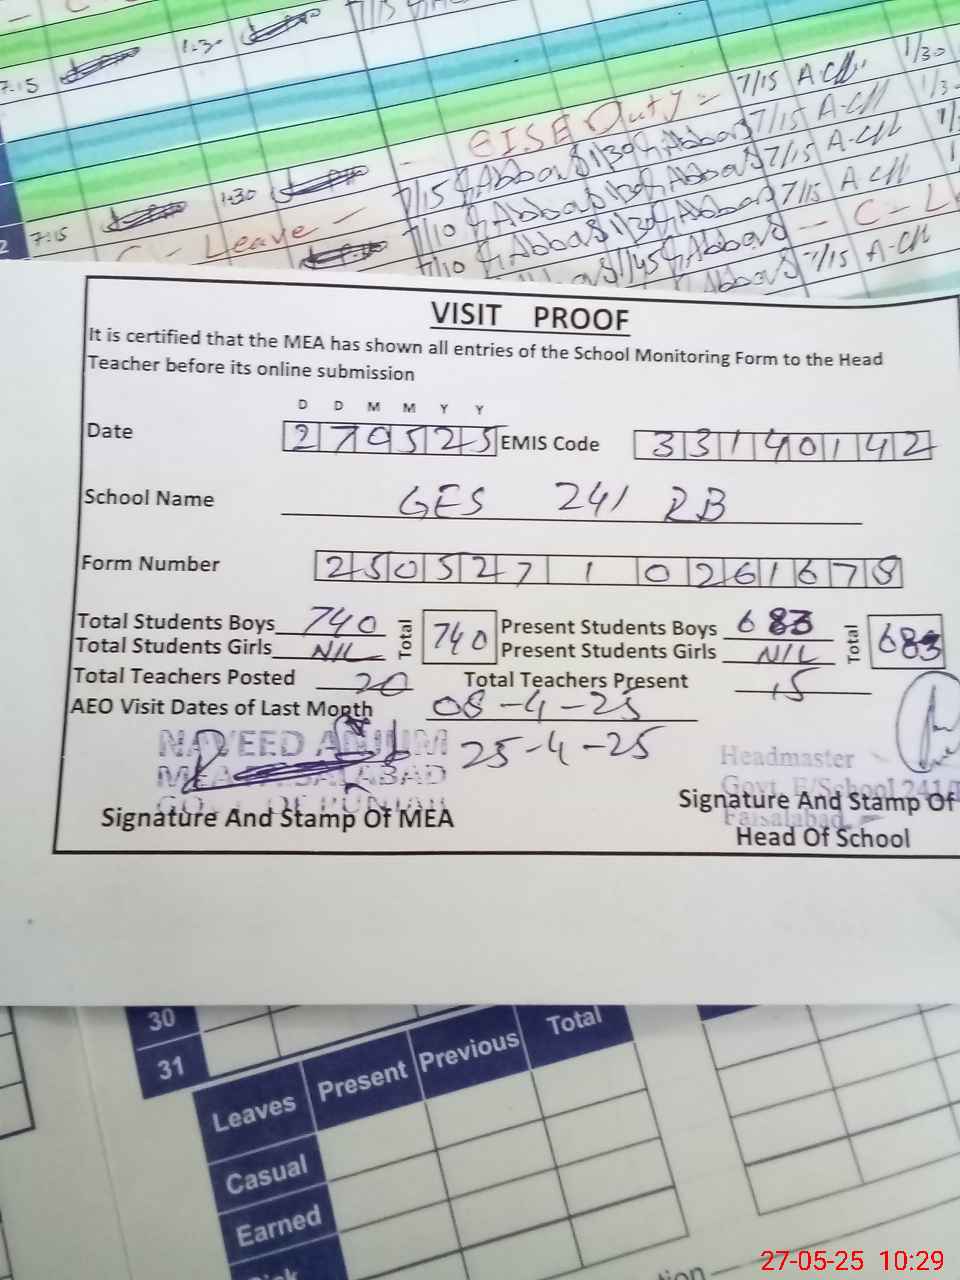 7:15 1.30 7/15
EISE Duty - 7/15 A.Ch 1/30
7/15 Abbas 1/30 Abbas 7/15 A-Ch 1/3
7:15 1:30 7/10 Abbas 1/30 Abbas 7/15 A-Ch
2 C - Leave - 7/10 Abbas 1/30 Abbas 7/15 A-Ch
1/45 Abbas - C - Le
Abbas 7/15 A-Ch
VISIT PROOF
It is certified that the MEA has shown all entries of the School Monitoring Form to the Head
Teacher before its online submission
D D M M Y Y
Date 270525 EMIS Code 33140142
School Name GES 241 RB
Form Number 250527 1 0261678
Total Students Boys 740 Total 740 Present Students Boys 683 Total 683
Total Students Girls NIL Present Students Girls NIL
Total Teachers Posted 20 Total Teachers Present 15
AEO Visit Dates of Last Month 08-4-25
25-4-25
NAVEED ANJUM
MEA FAISALABAD
GOVT. OF PUNJAB
Signature And Stamp Of MEA
Headmaster
Govt. E/School 241/
Faisalabad.
Signature And Stamp Of
Head Of School
30
31
Leaves Present Previous Total
Casual
Earned
27-05-25 10:29